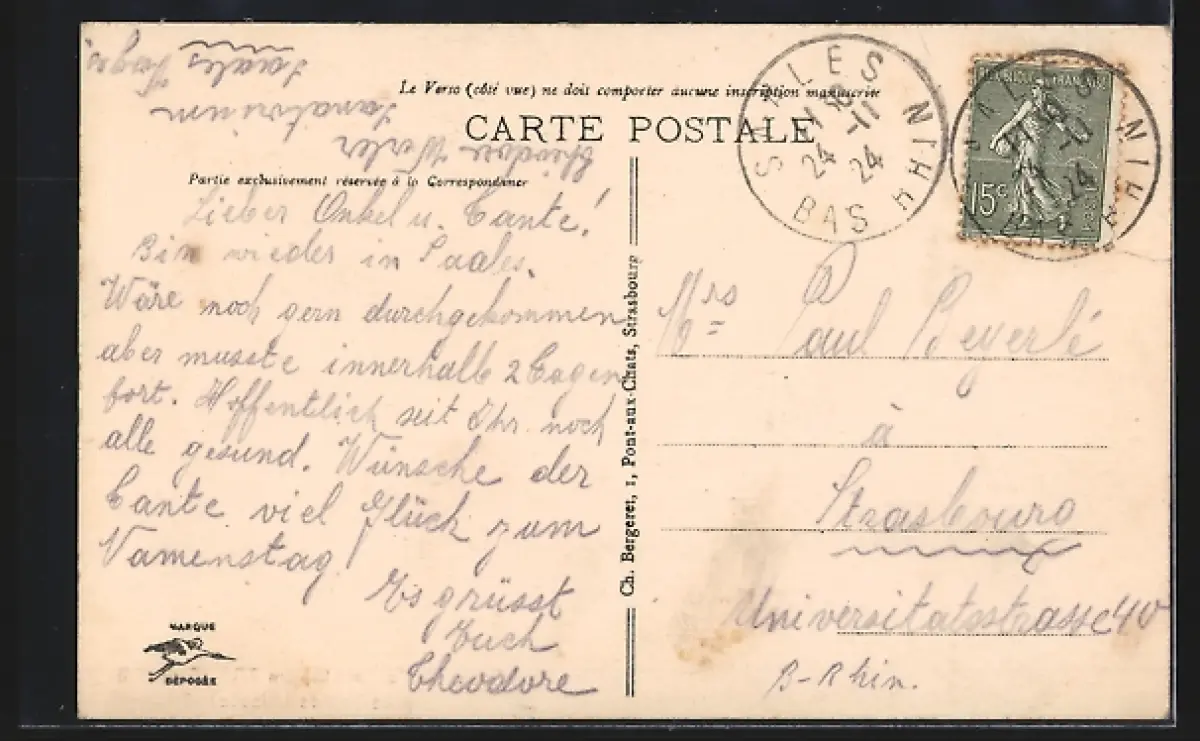 Le Verso (côté vue) ne doit comporter aucune inscription manuscrite
CARTE POSTALE
Partie exclusivement réservée à la Correspondance
Lieber Onkel u. Tante!
Bin wieder in Saales.
Wäre noch gern durchgekommen
aber musste innerhalb 2 Tagen
fort. Hoffentlich seit Ihr noch
alle gesund. Wünsche der
Tante viel Glück zum
Namenstag!
Es grüsst
Euch
Theodore
Theodore
Sanatorium
Saales
MARQUE
DÉPOSÉE
Ch. Bergeret, 1, Pont-aux-Chats, Strasbourg
SAALES
BAS RHIN
18-11
24 24
RÉPUBLIQUE FRANÇAISE
15c
Mrs Paul Beyerlé
à
Strasbourg
Universitatsstrasse 40
B-Rhin.